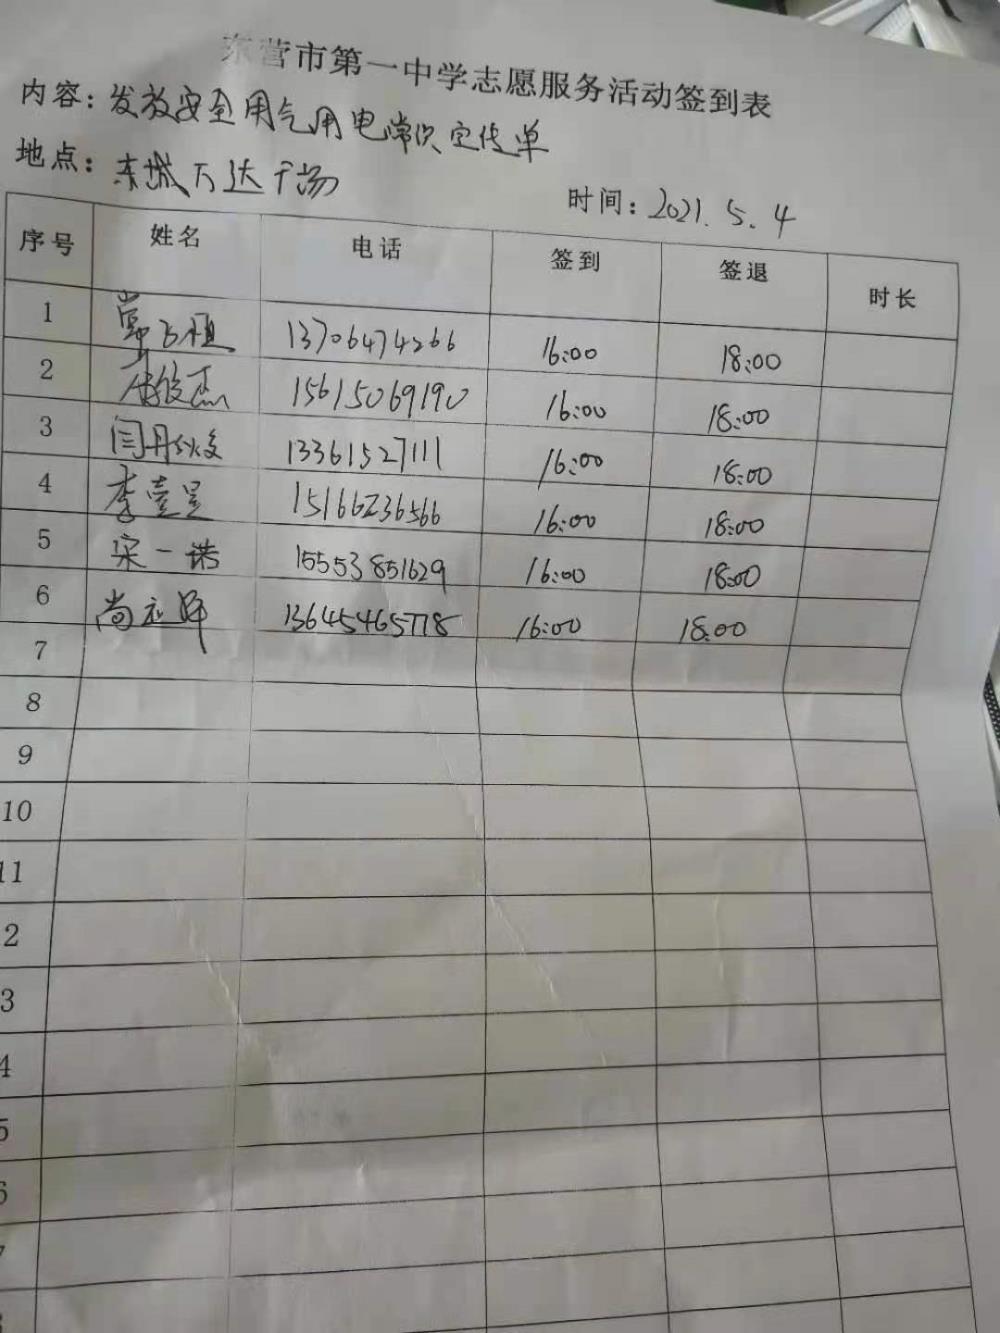 东营市第一中学志愿服务活动签到表
内容：发放安全用气用电常识宣传单
地点：东城万达广场
时间：2021.5.4
序号 姓名 电话 签到 签退 时长
1 13706474266 16:00 18:00
2 15615069190 16:00 18:00
3 闫丹 13361527111 16:00 18:00
4 李壹昱 15166236566 16:00 18:00
5 宋一诺 15553851629 16:00 18:00
6 尚 13645465778 16:00 18:00
7
8
9
10
11
2
3
4
5
6
7